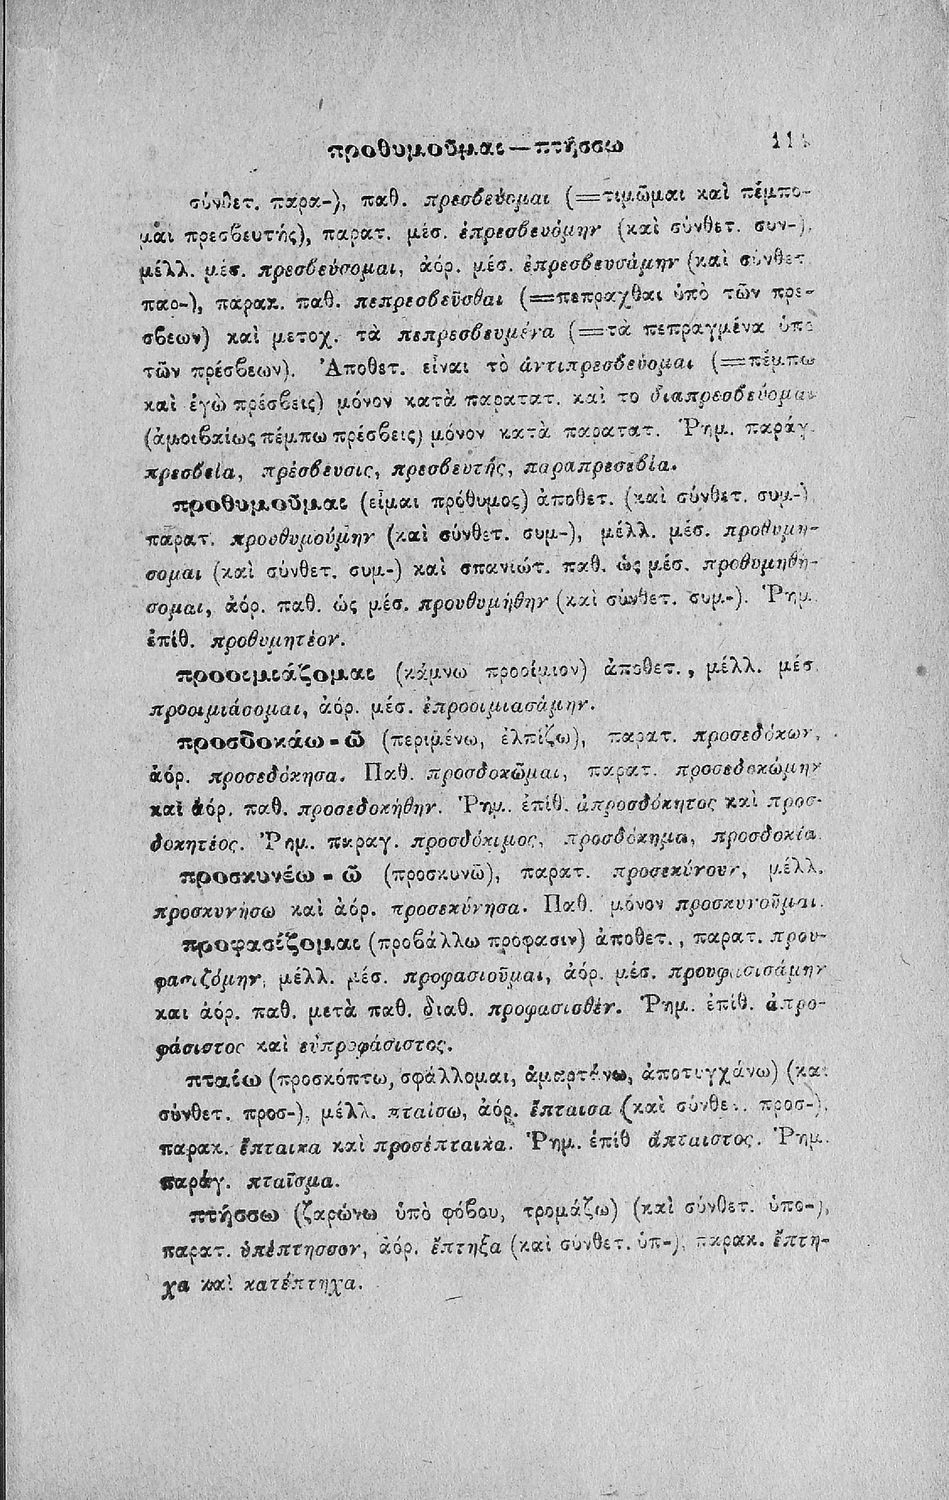 προθυμοῦμαι — πτήσσω
σύνθετ. παρα-), παθ. πρεσβεύομαι (=τιμῶμαι καὶ πέμπο-
μαι πρεσβευτής), παρατ. μέσ. ἐπρεσβευόμην (καὶ σύνθετ. συν-),
μέλλ. μέσ. πρεσβεύσομαι, ἀόρ. μέσ. ἐπρεσβευσάμην (καὶ σύνθετ.
παρ-), παρακ. παθ. πεπρεσβεῦσθαι (=πεπραχθαι ὑπὸ τῶν πρε-
σβεων) καὶ μετοχ. τὰ πεπρεσβευμένα (=τὰ πεπραγμένα ὑπὸ
τῶν πρέσβεων). Ἀποθετ. εἶναι τὸ ἀντιπρεσβεύομαι (=πέμπω
καὶ ἐγὼ πρέσβεις) μόνον κατὰ παρατατ. καὶ το διαπρεσβεύομαι
(ἀμοιβαίως πέμπω πρέσβεις) μόνον κατὰ παρατατ. Ῥημ. παράγ.
πρεσβεία, πρέσβευσις, πρεσβευτής, παραπρεσεβία.
προθυμοῦμαι (εἶμαι πρόθυμος) ἀποθετ. (καὶ σύνθετ. συμ-)
παρατ. προυθυμούμην (καὶ σύνθετ. συμ-), μέλλ. μέσ. προθυμή-
σομαι (καὶ σύνθετ. συμ-) καὶ σπανιώτ. παθ. ὡς μέσ. προθυμηθή-
σομαι, ἀόρ. παθ. ὡς μέσ. προυθυμήθην (καὶ σύνθετ. συμ-). Ῥημ.
ἐπίθ. προθυμητέον.
προοιμιάζομαι (κάμνω προοίμιον) ἀποθετ., μέλλ. μέσ.
προοιμιάσομαι, ἀόρ. μέσ. ἐπροοιμιασάμην.
προσδοκάω-ῶ (περιμένω, ἐλπίζω), παρατ. προσεδόκων,
ἀόρ. προσεδόκησα. Παθ. προσδοκῶμαι, παρατ. προσεδοκώμην
καὶ ἀόρ. παθ. προσεδοκήθην. Ῥημ. ἐπίθ. ἀπροσδόκητος καὶ προσ-
δοκητέος. Ῥημ. παραγ. προσδόκιμος, προσδόκημα, προσδοκία.
προσκυνέω-ῶ (προσκυνῶ), παρατ. προσεκύνουν, μέλλ.
προσκυνήσω καὶ ἀόρ. προσεκύνησα. Παθ. μόνον προσκυνοῦμαι.
προφασίζομαι (προβάλλω πρόφασιν) ἀποθετ., παρατ. πρου-
φασιζόμην, μέλλ. μέσ. προφασιοῦμαι, ἀόρ. μέσ. προυφασισάμην
και ἀόρ. παθ. μετὰ παθ. διαθ. προφασισθέν. Ῥημ. ἐπίθ. ἀπρο-
φάσιστος καὶ εὐπροφάσιστος.
πταίω (προσκόπτω, σφάλλομαι, ἁμαρτάνω, ἀποτυγχάνω) (καὶ
σύνθετ. προσ-), μέλλ. πταίσω, ἀόρ. ἔπταισα (καὶ σύνθετ. προσ-),
παρακ. ἔπταικα καὶ προσέπταικα. Ῥημ. ἐπίθ ἄπταιστος. Ῥημ.
παράγ. πταῖσμα.
πτήσσω (ζαρώνω ὑπὸ φόβου, τρομάζω) (καὶ σύνθετ. ὑπο-),
παρατ. ὑπέπτησσον, ἀόρ. ἔπτηξα (καὶ σύνθετ. ὑπ-), παρακ. ἔπτη-
χα καὶ κατέπτηχα.